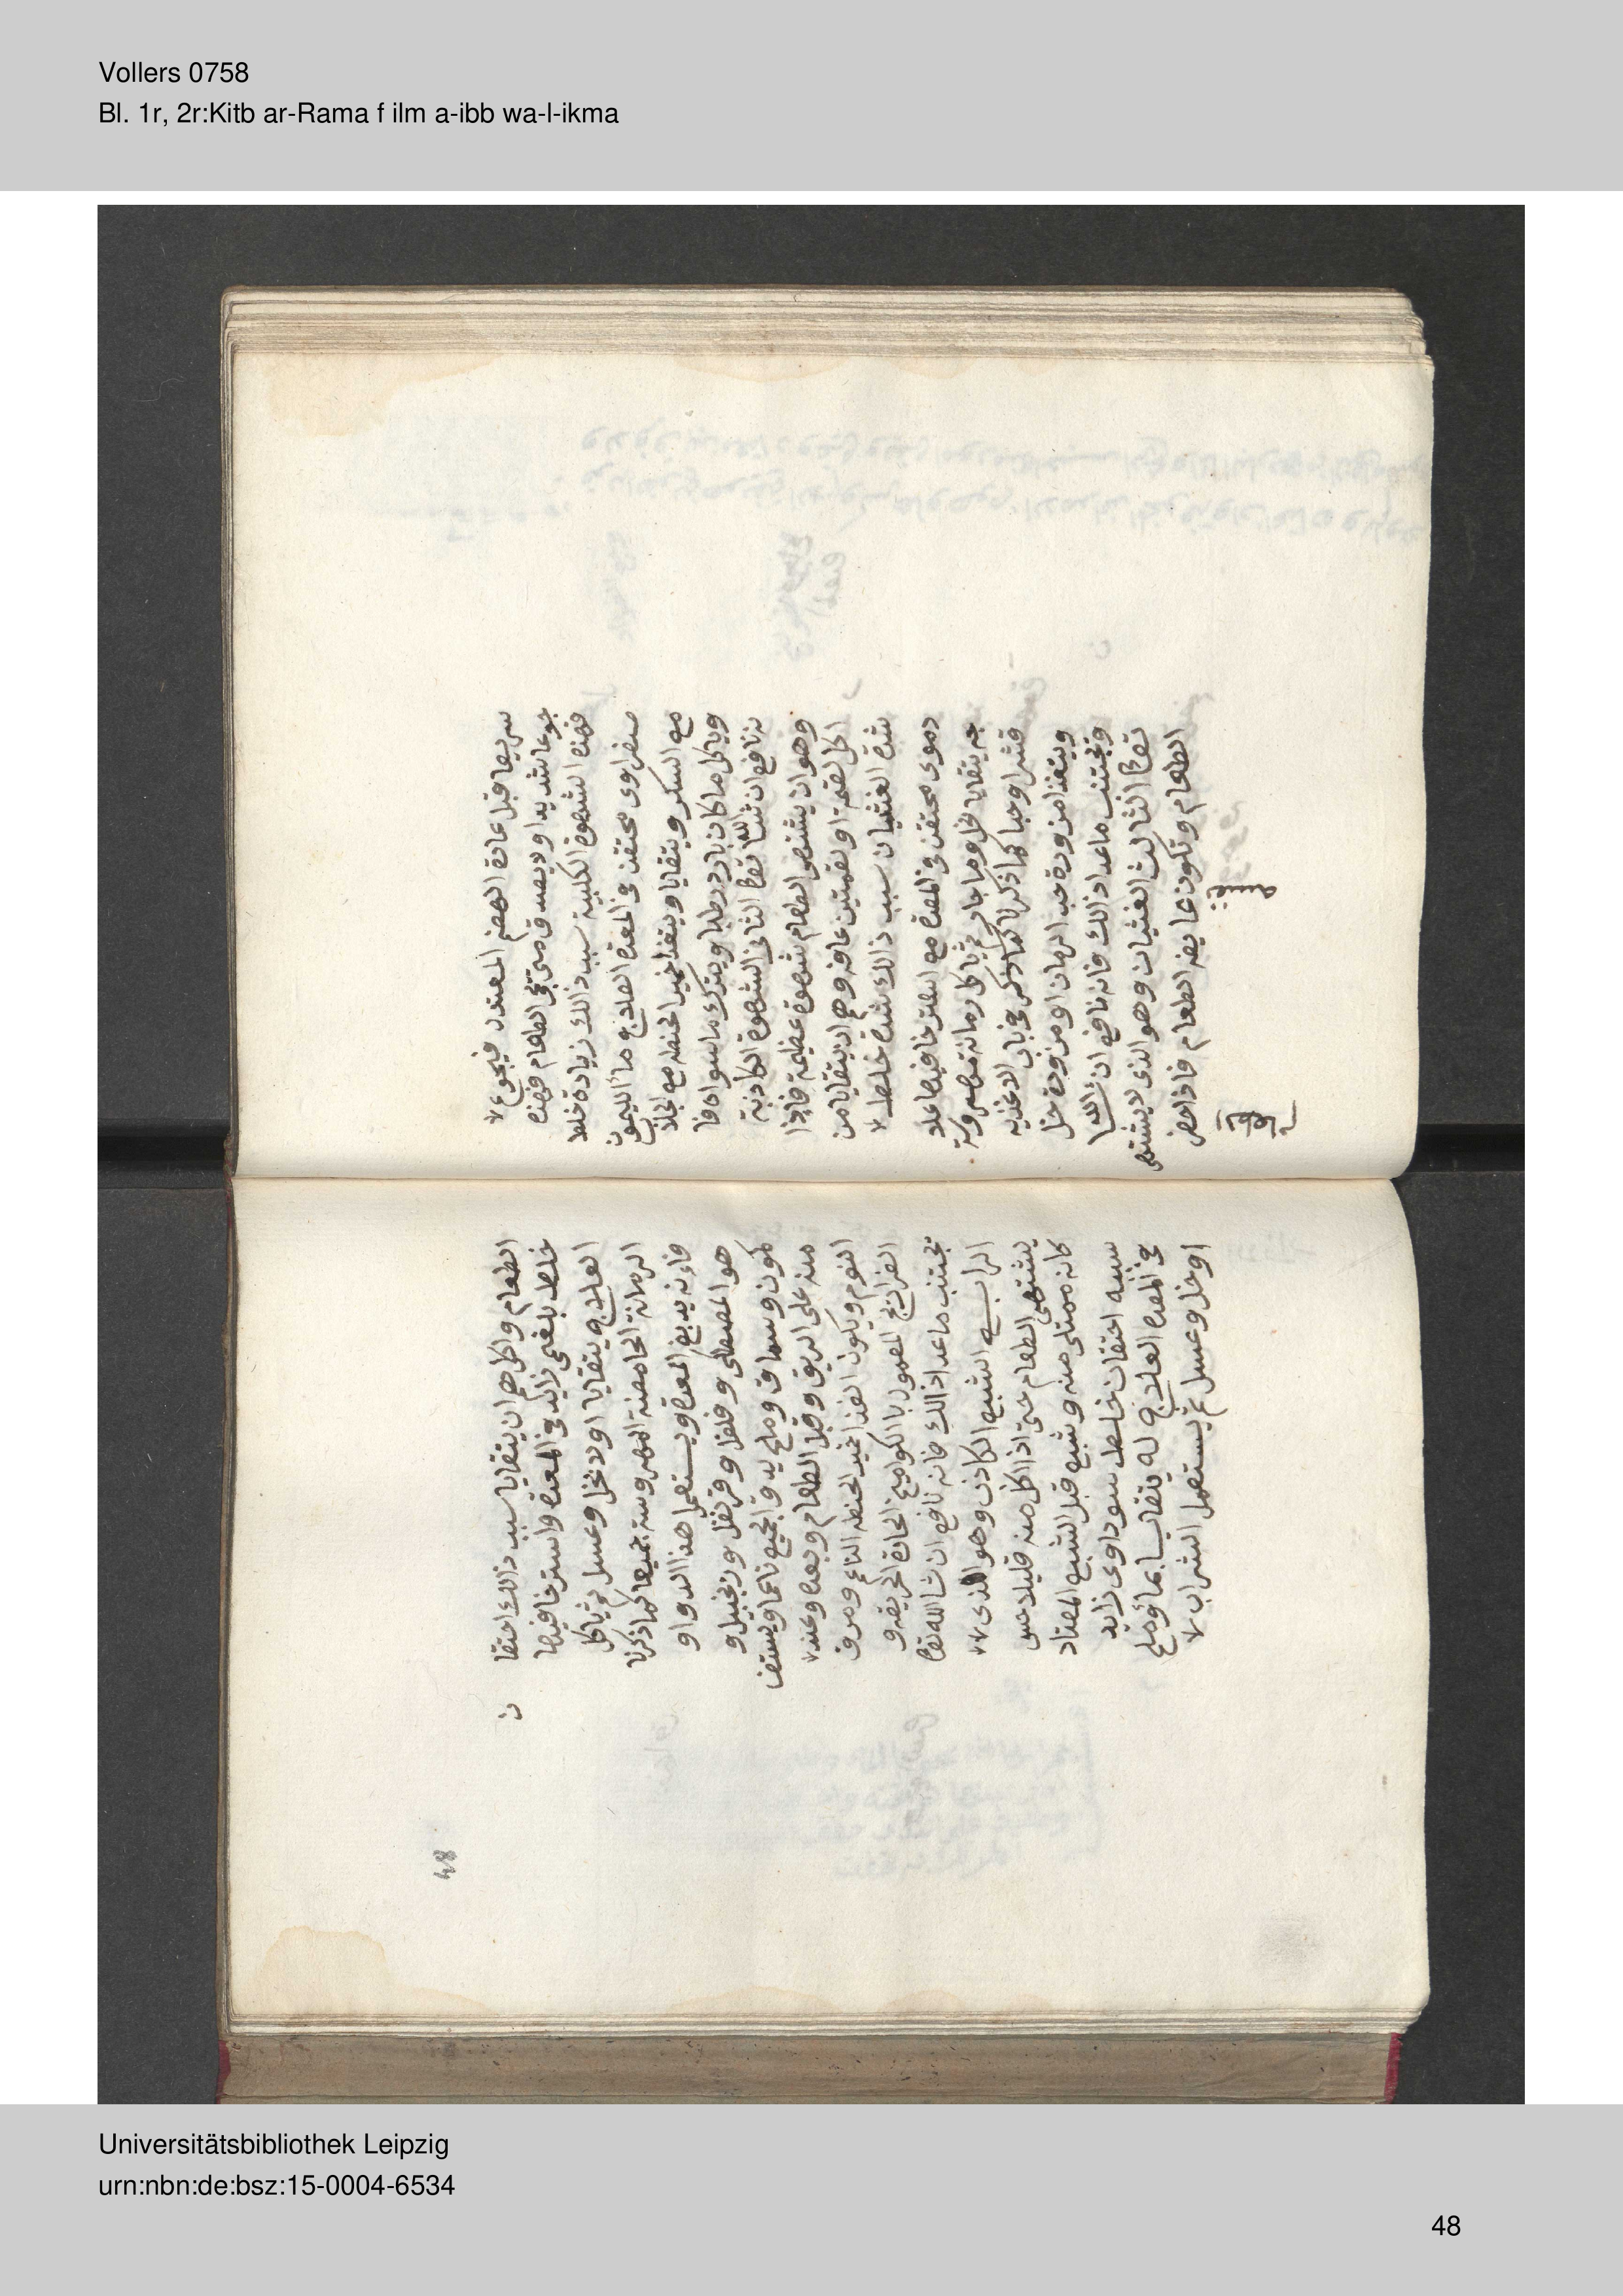 Vollers 0758
Bl. 1r, 2r:Kitb ar-Rama f ilm a-ibb wa-l-ikma
سريعا قبل عادة الهضم المعتدل فيجوع
جوعا شديدا ولا يصدق متى يجى الطعام فهذه
فهذه الشهوة الكلبية سبب ذالك زيادة خلط
صفراوى محتقن فى المعدة العلاج ماء الليمون
مع السكر ويتقايا ويتغذا خبز الحنطه مع الجلا
وياكل ما كان بارد رطبا ويترك ما سواه فا
نه نافع ان شا الله تعالى الثانى الشهوة الكاذبة
وهو ان يشتهى الطعام شهوة عظيمة فاذا
اكل لقمة او لقمتين عافه وهم ان يتقايا من
شدة الغثيان سبب ذالك شدة خلط
دموى محتقن فى المعدة مع استرخا فيها علا
جه يتقايا بالخل وما حار ثم ياكل رمانة مهروسة
قشرا وحبا كما ذكرنا كما ذكر فى باب الاغذيه
ويتغذا مزورة حب الرمان او مزورة خل
وتجتنب ما عدا ذالك فانه نافع ان شا الله
تعالى الثالث الغثيان وهو الذى لا يشتهى
الطعام وتكون عايفه الطعام فاذا حضر
الطعام واكل هم ان يتقايا سبب ذالك احتقا
ن
خلط بلغمى زايد فى المعدة واسترخا فيها
العلاج يتقايا اولا بخل وعسل ثم ياكل
الرمانة الحامضة المهروسة جميعا كما ذكرنا
فاءنه يدبغ المعدة ويستعمل هذا الدوا و
هو المصطكى وفلفل وقرنفل وزنجبيل و
كمون وسماق وملح يدق الجميع ناعما ويستف
منه على الريق وقبل الطعام وبعده وعند
النوم ويكون الغذا خبز الحنطه الناعم ومرق
الفراريج المعمول بالكواميخ الحادة الحريفه و
تجتنب ما عدا ذالك فانه نافع ان شا الله تعالى
الرابع الشبع الكاذب وهو الذى
يشتهى الطعام حتى اذا اكل منه قليلا حس
كانه ممتلى منه وشبع قبل الشبع المعتاد
سببه احتقان خلط سوداوى زايد
فى المعدة العلاج له يتقايا بماء وملح
او خل وعسل ثم يستعمل الشراب
48
Universitätsbibliothek Leipzig
urn:nbn:de:bsz:15-0004-6534
48